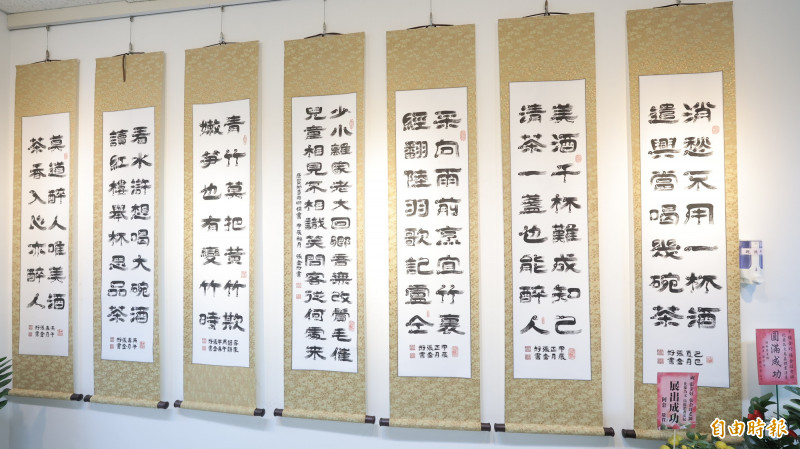 消愁不用一杯酒
遣興當喝幾碗茶
美酒千杯難成知己
清茶一盞也能醉人
甲辰
正月
張金
好書
采向雨前烹宜竹裏
經翻陸羽歌記盧仝
甲辰
正月
張金
好書
少小離家老大回鄉音無改鬢毛催
兒童相見不相識笑問客從何處來
青竹莫把黃竹欺
嫩笋也有變竹時
看水滸想喝大碗酒
讀紅樓舉杯思品茶
莫道醉人唯美酒
茶香入心亦醉人
圓滿成功
展出成功
自由時報